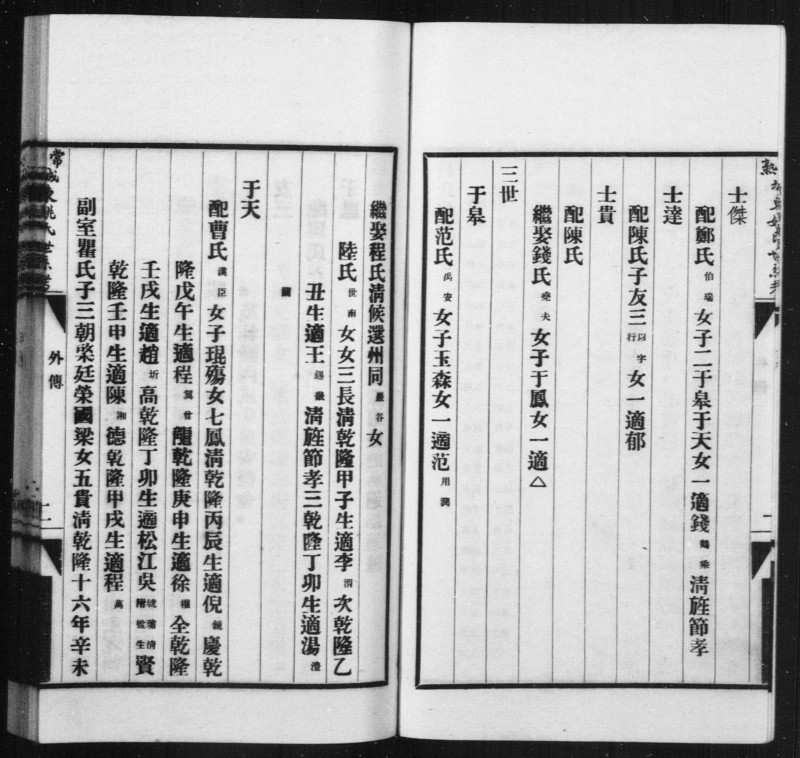 士傑
配鄭氏伯瑞女子二于皋于天女一適錢鶴乘清旌節孝
士達
配陳氏子友三以字行女一適郁
士貴
配陳氏
繼娶錢氏堯夫女子于鳳女一適△
三世
于皋
配范氏禹安女子玉森女一適范用潤
繼娶程氏清候選州同巖谷女
陸氏世南女女三長清乾隆甲子生適李次乾隆乙
丑生適王清旌節孝三乾隆丁卯生適湯澧
于天
配曹氏漢臣女子琨殤女七鳳清乾隆丙辰生適倪慶乾
隆戊午生適程龍乾隆庚申生適徐全乾隆
壬戌生適趙圻高乾隆丁卯生適松江吳附監生賢
乾隆壬申生適陳湘德乾隆甲戌生適程萬
副室瞿氏子三朝棨廷榮國梁女五貴清乾隆十六年辛未
外傳
二